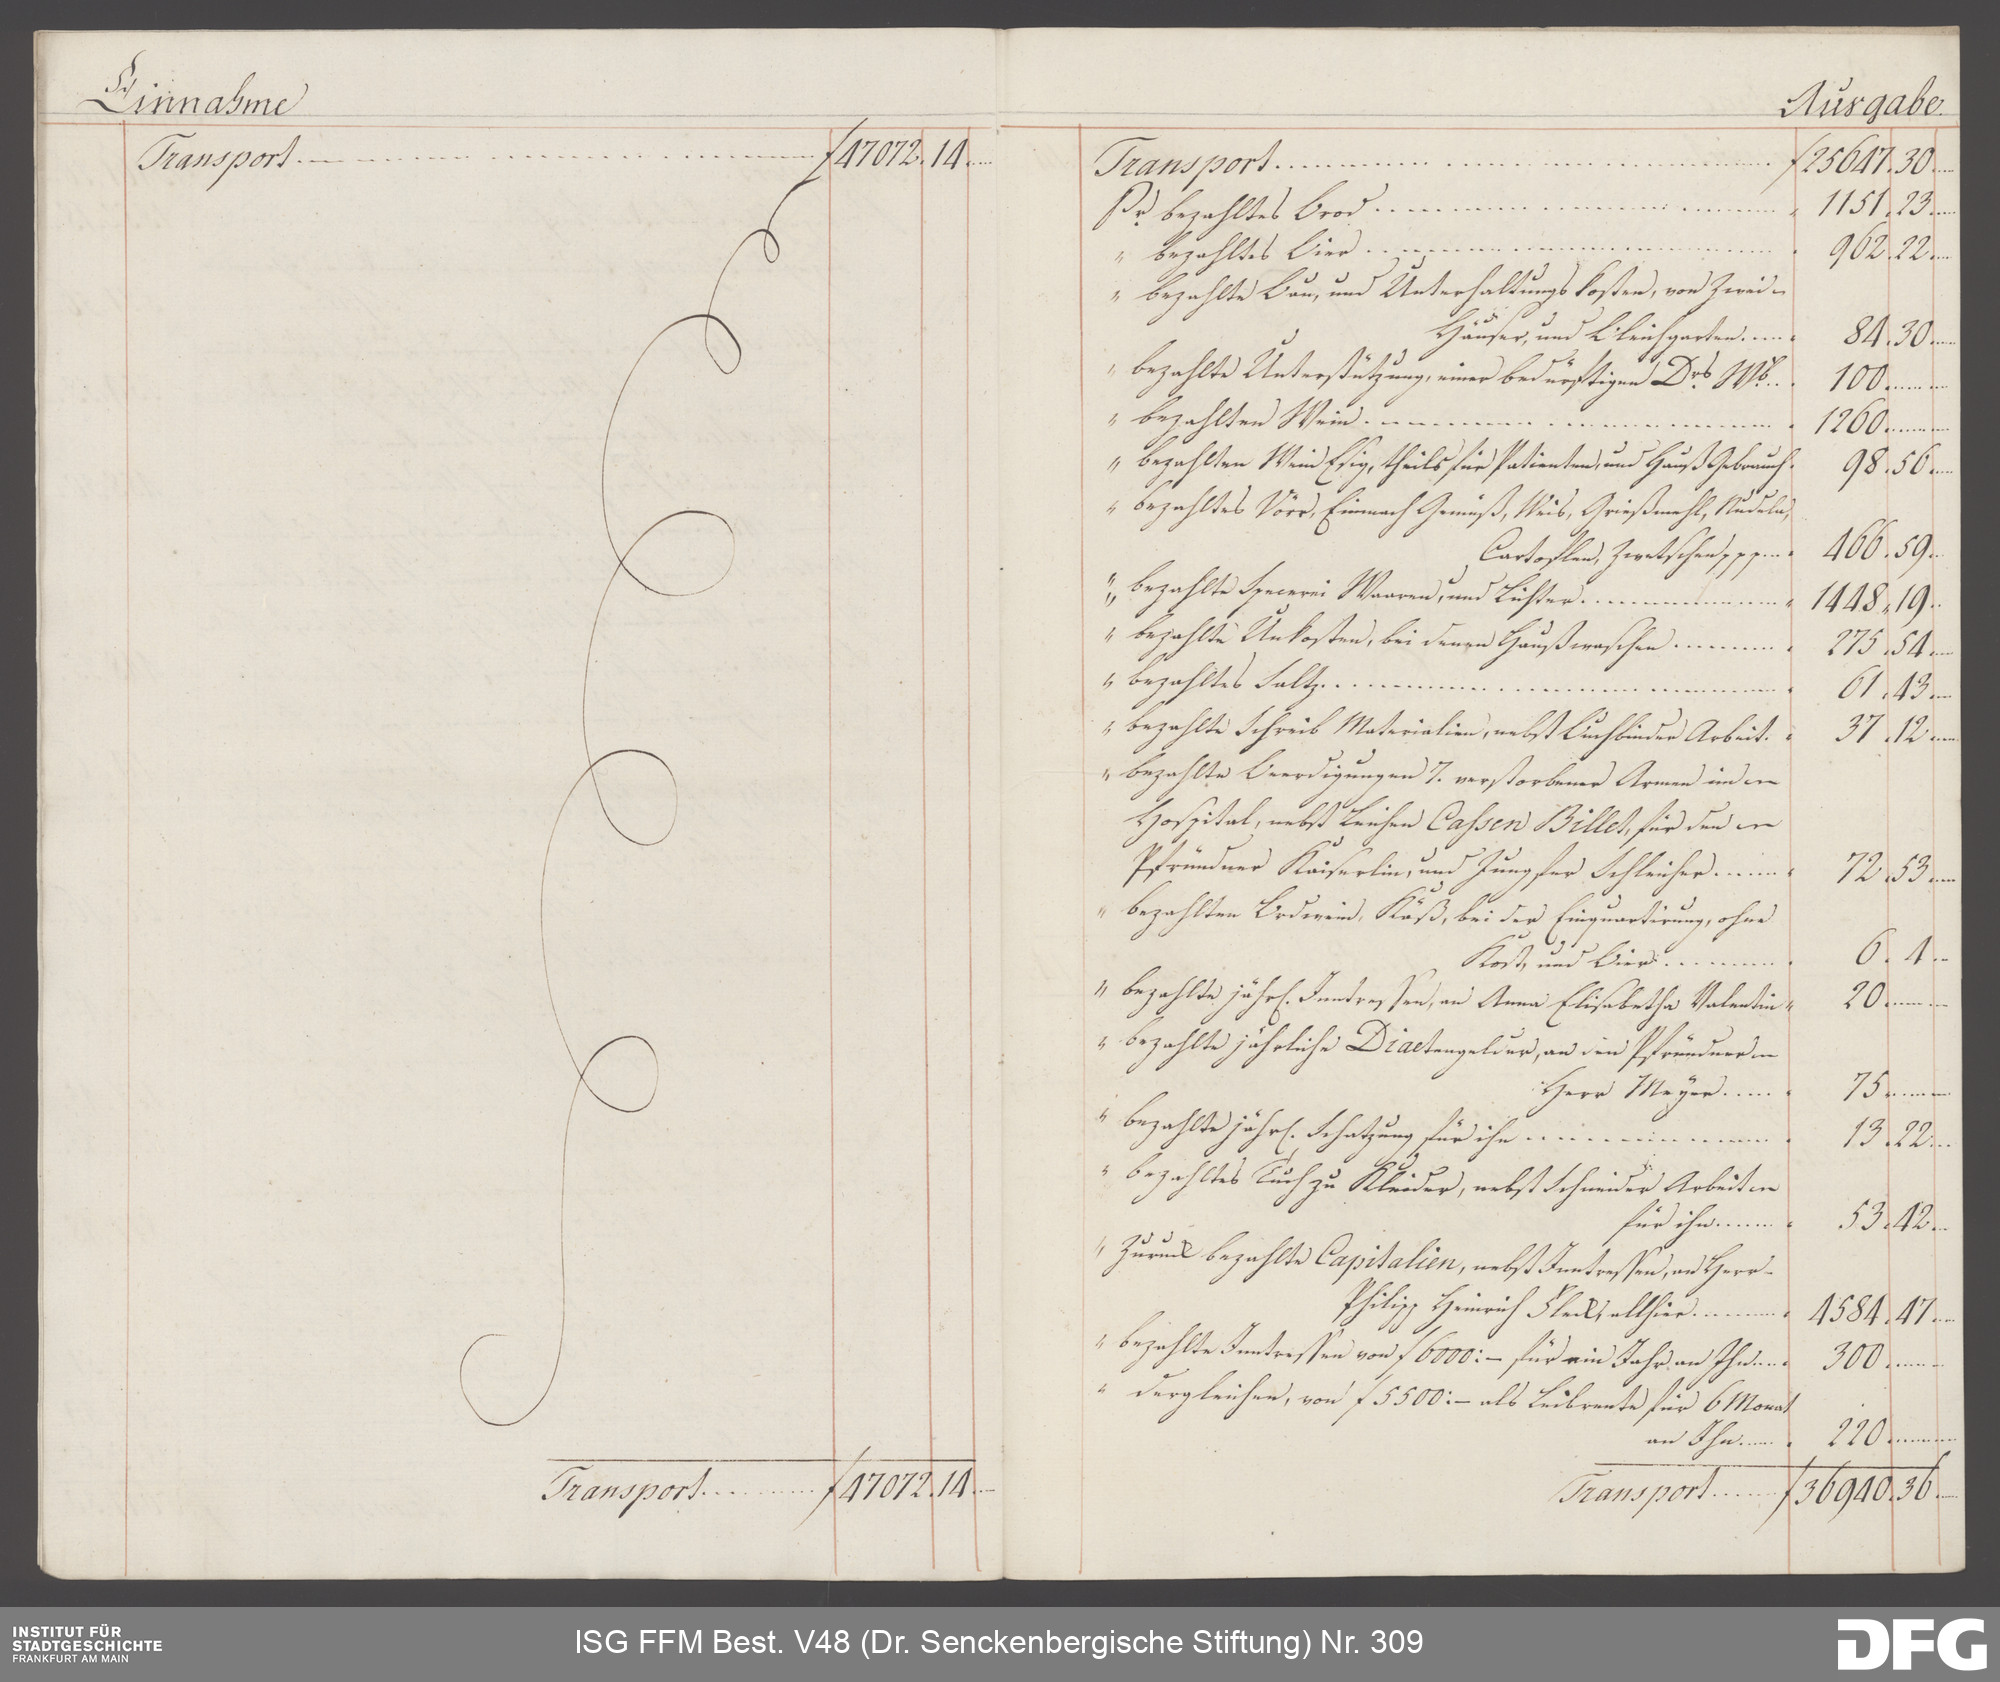 Einnahme
Transport f 47072. 14.
Transport f 47072. 14.
Ausgabe
Transport f 25647. 30.
Pr. bezahltes Brod 1151. 23.
" bezahltes Bier 962. 22.
" bezahlte Bau, und Unterhaltungs kosten, von Zwei
Häuser, und Bleichgarten 84. 30.
" bezahlte Unterstützung, einer bedürftigen Drs Wb. 100.
" bezahlten Wein 1260.
" bezahlten Wein Essig, theils für Patienten, und Hauß Gebrauch 98. 56.
" bezahltes Dörr, Einmach Gemüß, Reis, Grießmehl, Nudeln,
Cartoflen, Zwetschen ppp 466. 59.
" bezahlte Specerei Waaren, und Lichter 1448. 19.
" bezahlte Unkosten, bei denen Haußwaschen 275. 54.
" bezahltes Saltz 61. 43.
" bezahlte Schreib Materialien, nebst Buchbinder Arbeit. 37. 12.
" bezahlte Beerdigungen 7. verstorbener Armen im
Hospital, nebst Leichen Cassen Billet, für den
Pfründner Kaiserlin, und Jungfer Schleicher 72. 53.
" bezahlten Brdwein, Käß, bei der Einquartirung, ohne
Kost, und Bier 6. 4.
" bezahlte jährl. Inntressen, an Anna Elisabetha Valentin 20.
" bezahlte jährliche Diaetengelder, an den Pfründner
Herr Meyer 75.
" bezahlte jährl. Schatzung für ihn 13. 22.
" bezahltes Tuch zu Kleider, nebst Schneider Arbeit
für ihn 53. 42.
" Zurück bezahlte Capitalien, nebst Inntressen, an Herr
Philipp Heinrich Fleck, allhier 4584. 47.
" bezahlte Inntressen von f 6000:— für ein Jahr an Ihn 300.
" dergleichen, von f 5500:— als Leibrente für 6 Monat
an Ihn 220.
Transport f 36940. 36.
INSTITUT FÜR
STADTGESCHICHTE
FRANKFURT AM MAIN
ISG FFM Best. V48 (Dr. Senckenbergische Stiftung) Nr. 309
DFG